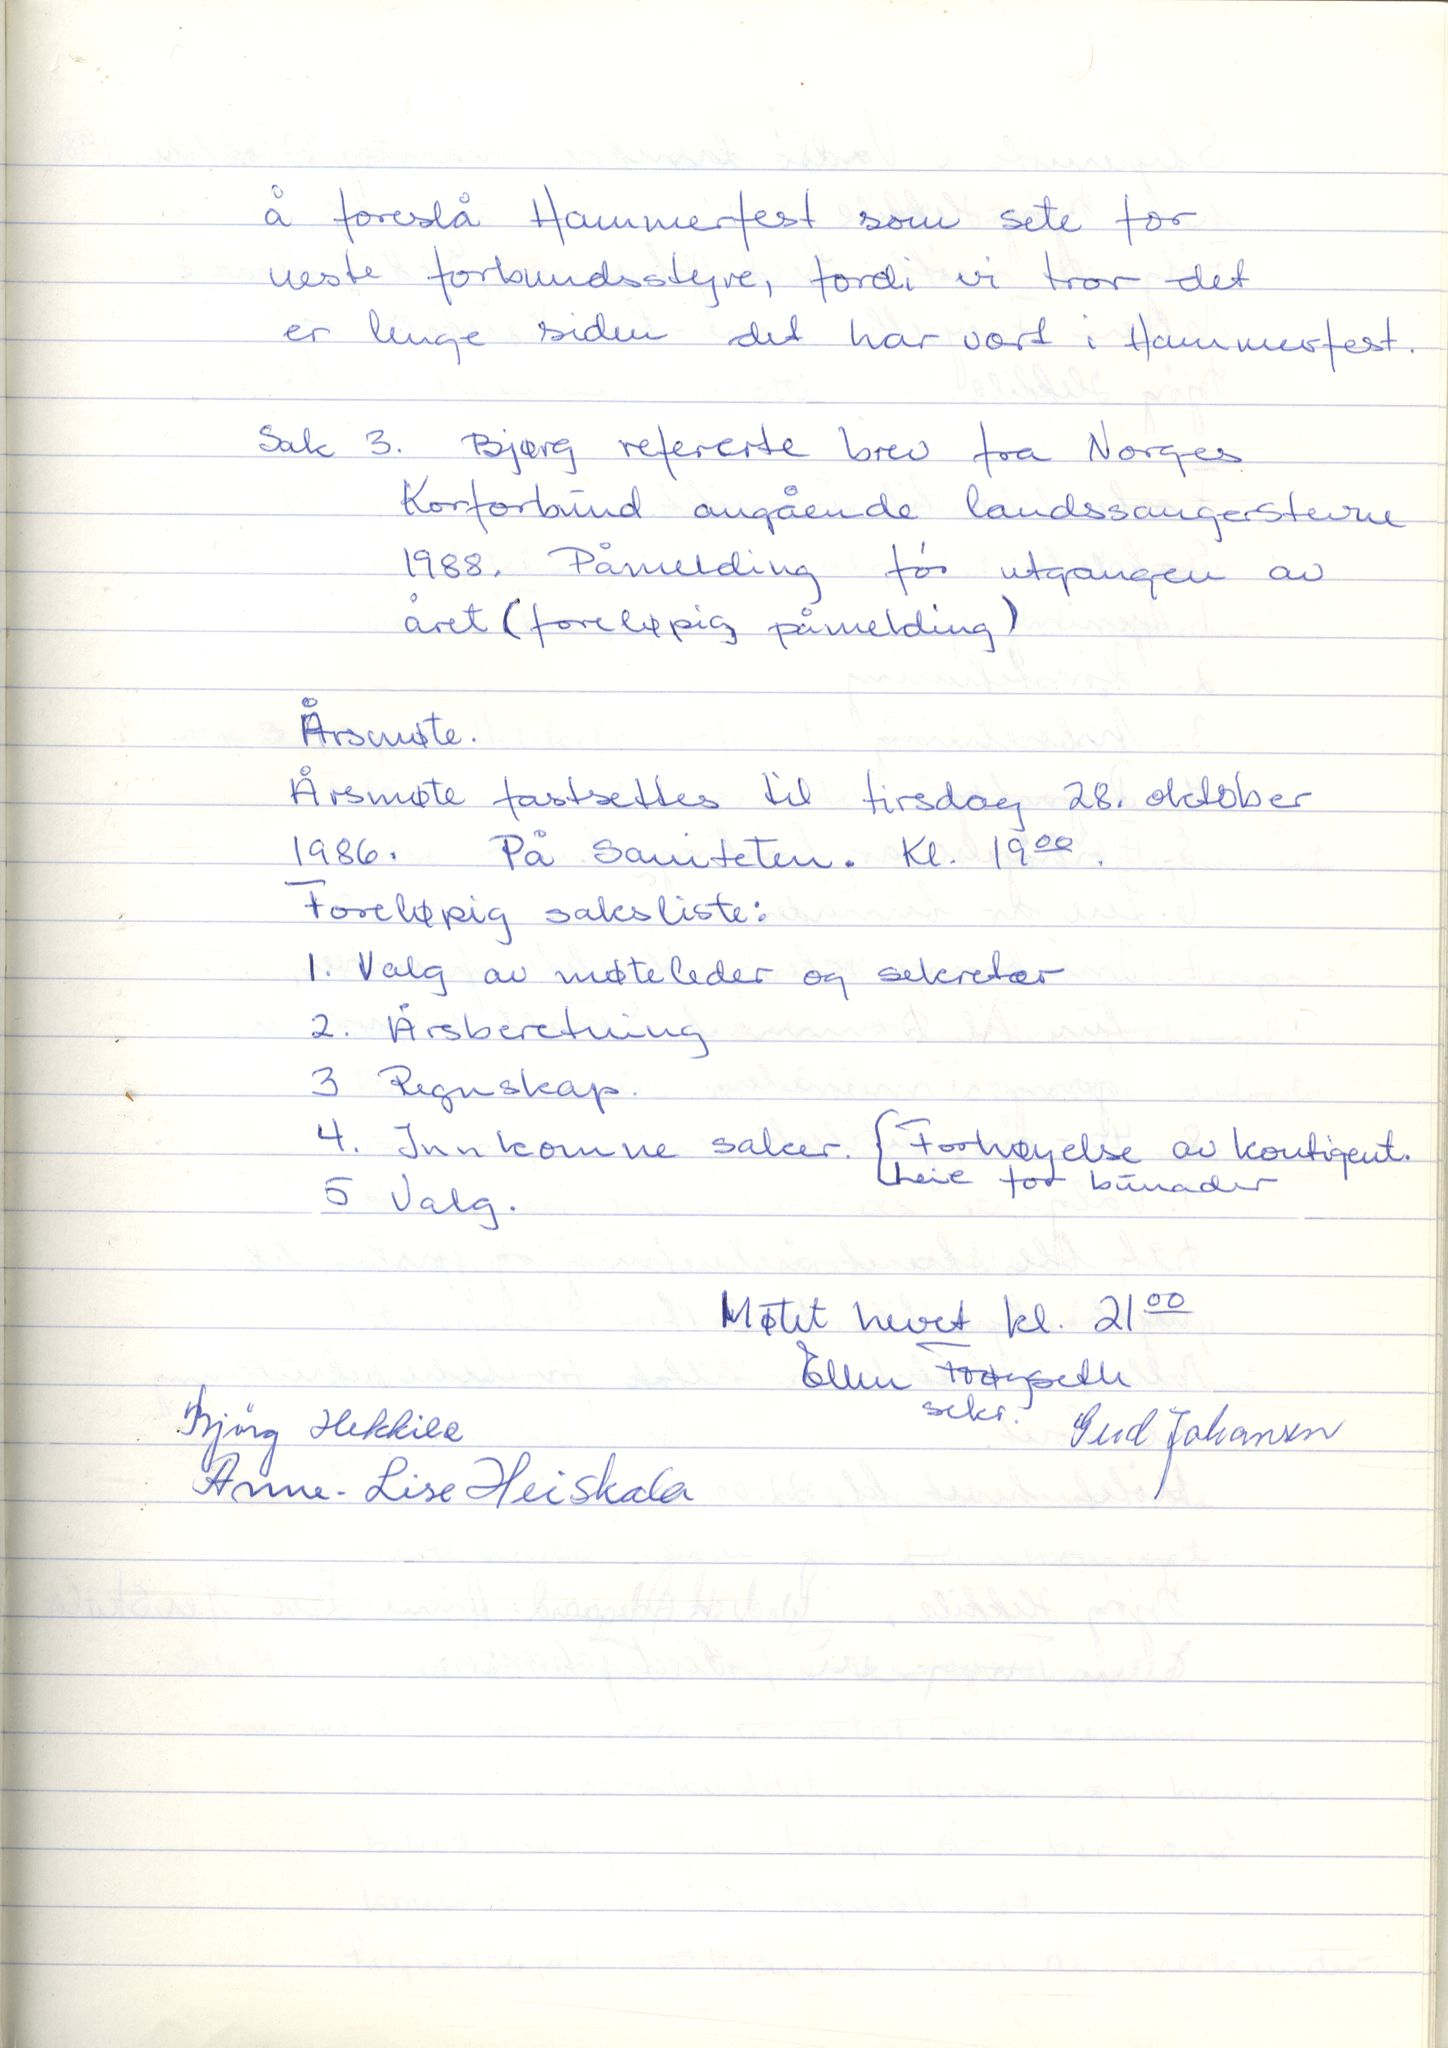 å foreslå Hammerfest som sete for
neste forbundsstyre, fordi vi tror det
er lenge siden det har vært i Hammerfest.
Sak 3. Bjørg refererte brev fra Norges
Korforbund angående landssangerstevne
1988. Påmelding før utgangen av
året (foreløpig påmelding)
Årsmøte.
Årsmøte fastsettes til tirsdag 28. oktober
1986. På Saniteten. Kl. 19⁰⁰.
Foreløpig saksliste:
1. Valg av møteleder og sekretær
2. Årsberetning
3 Regnskap.
4. Innkomne saker. { Forhøyelse av kontigent.
leie for bunader
5 Valg.
Møtet hevet kl. 21⁰⁰
Ellen
sekr.
Bjørg Hekkila
Gerd Johansen
Anne-Lise Heiskala